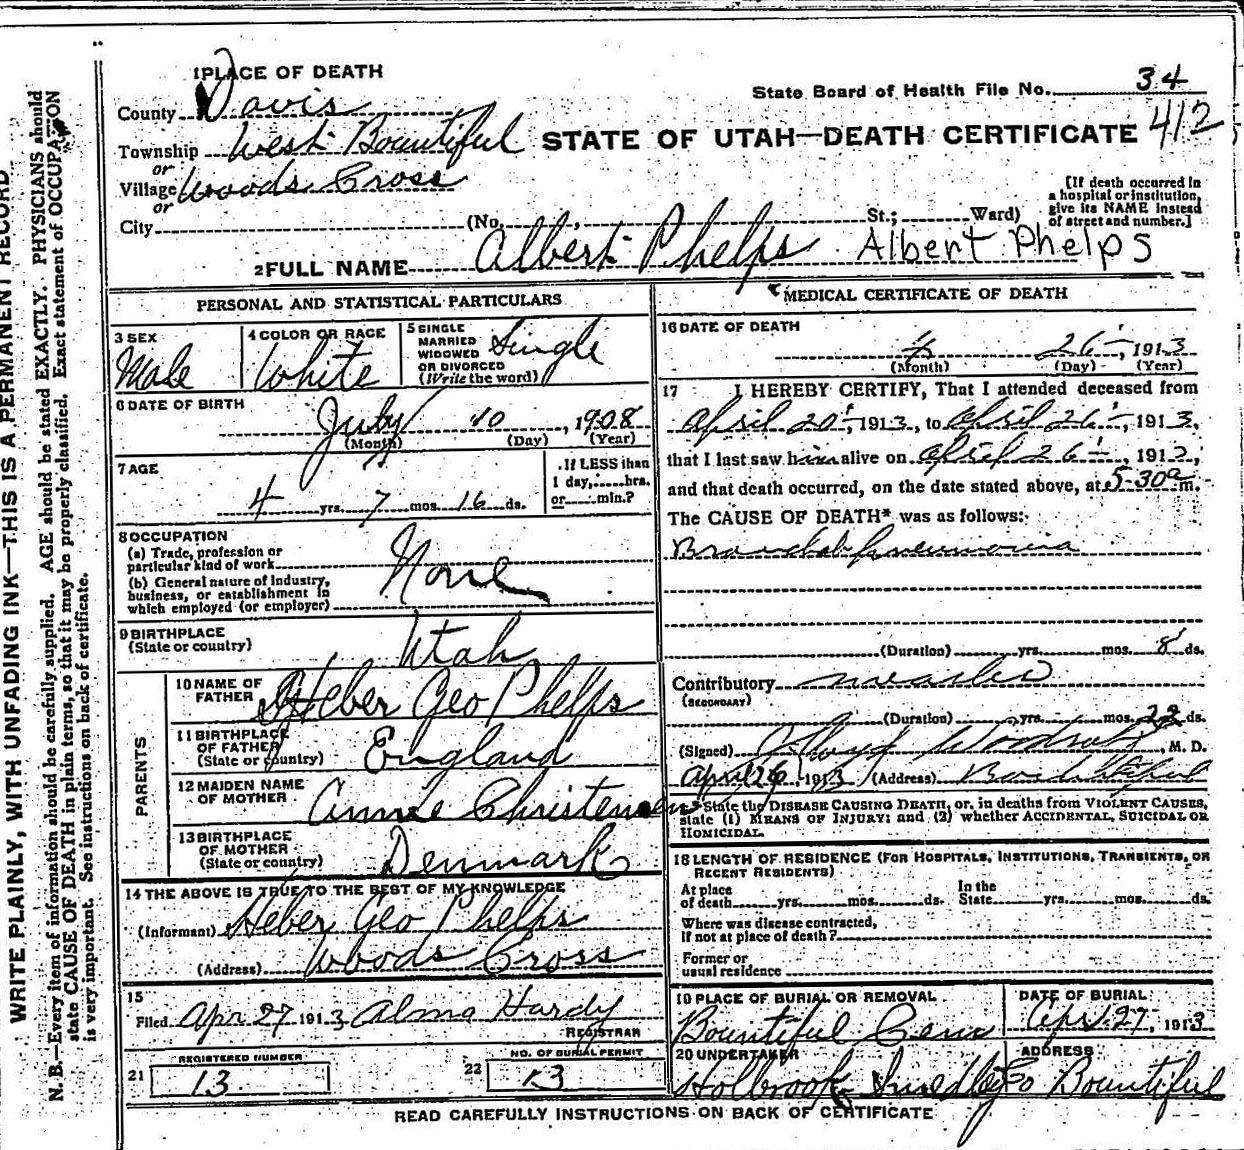 1 PLACE OF DEATH
State Board of Health File No. 34
412
County Davis
STATE OF UTAH—DEATH CERTIFICATE
Township West Bountiful
or
Village Woods Cross
or
City (No. St.; Ward)
[If death occurred in
a hospital or institution,
give its NAME instead
of street and number.]
2 FULL NAME Albert Phelps Albert Phelps
PERSONAL AND STATISTICAL PARTICULARS
3 SEX
Male
4 COLOR OR RACE
White
5 SINGLE
MARRIED
WIDOWED
OR DIVORCED
(Write the word)
Single
6 DATE OF BIRTH
July 10, 1908
(Month) (Day) (Year)
7 AGE
4 yrs. 7 mos. 16 ds.
If LESS than
1 day, hrs.
or min.?
8 OCCUPATION
(a) Trade, profession or
particular kind of work
(b) General nature of industry,
business, or establishment in
which employed (or employer)
None
9 BIRTHPLACE
(State or country)
Utah
PARENTS
10 NAME OF
FATHER
Heber Geo Phelps
11 BIRTHPLACE
OF FATHER
(State or country)
England
12 MAIDEN NAME
OF MOTHER
Annie Christensen
13 BIRTHPLACE
OF MOTHER
(State or country)
Denmark
14 THE ABOVE IS TRUE TO THE BEST OF MY KNOWLEDGE
(Informant) Heber Geo Phelps
(Address) Woods Cross
15
Filed Apr 27 1913 Alma Hardy
REGISTRAR
REGISTERED NUMBER
21 13
NO. OF BURIAL PERMIT
22 13
MEDICAL CERTIFICATE OF DEATH
16 DATE OF DEATH
4 26, 1913
(Month) (Day) (Year)
17 I HEREBY CERTIFY, That I attended deceased from
April 20, 1913, to April 26, 1913,
that I last saw him alive on April 26, 1913,
and that death occurred, on the date stated above, at 5-30a m.
The CAUSE OF DEATH* was as follows:
Pneumonia
(Duration) yrs. mos. 8 ds.
Contributory measles
(SECONDARY)
(Duration) yrs. mos. 22 ds.
(Signed) M. D.
April 26, 1913 (Address) Bountiful
*State the DISEASE CAUSING DEATH, or, in deaths from VIOLENT CAUSES,
state (1) MEANS OF INJURY; and (2) whether ACCIDENTAL, SUICIDAL OR
HOMICIDAL.
18 LENGTH OF RESIDENCE (FOR HOSPITALS, INSTITUTIONS, TRANSIENTS, OR
RECENT RESIDENTS)
At place
of death yrs. mos. ds.
In the
State yrs. mos. ds.
Where was disease contracted,
if not at place of death?
Former or
usual residence
19 PLACE OF BURIAL OR REMOVAL
Bountiful Cem
DATE OF BURIAL
Apr. 27, 1913
20 UNDERTAKER
Holbrook Smedley Co
ADDRESS
Bountiful
READ CAREFULLY INSTRUCTIONS ON BACK OF CERTIFICATE
WRITE PLAINLY, WITH UNFADING INK—THIS IS A PERMANENT RECORD
N. B.—Every item of information should be carefully supplied. AGE should be stated EXACTLY. PHYSICIANS should
state CAUSE OF DEATH in plain terms, so that it may be properly classified. Exact statement of OCCUPATION
is very important. See instructions on back of certificate.